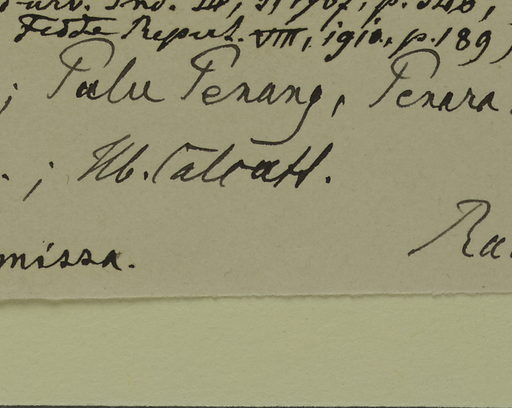 Ind. 14, 2, 1907, p. 326,
Fedde Repert. VIII, 1910, p. 189
; Pulu Penang, Penara
. ; Hb. Calcutt.
missa. Ra